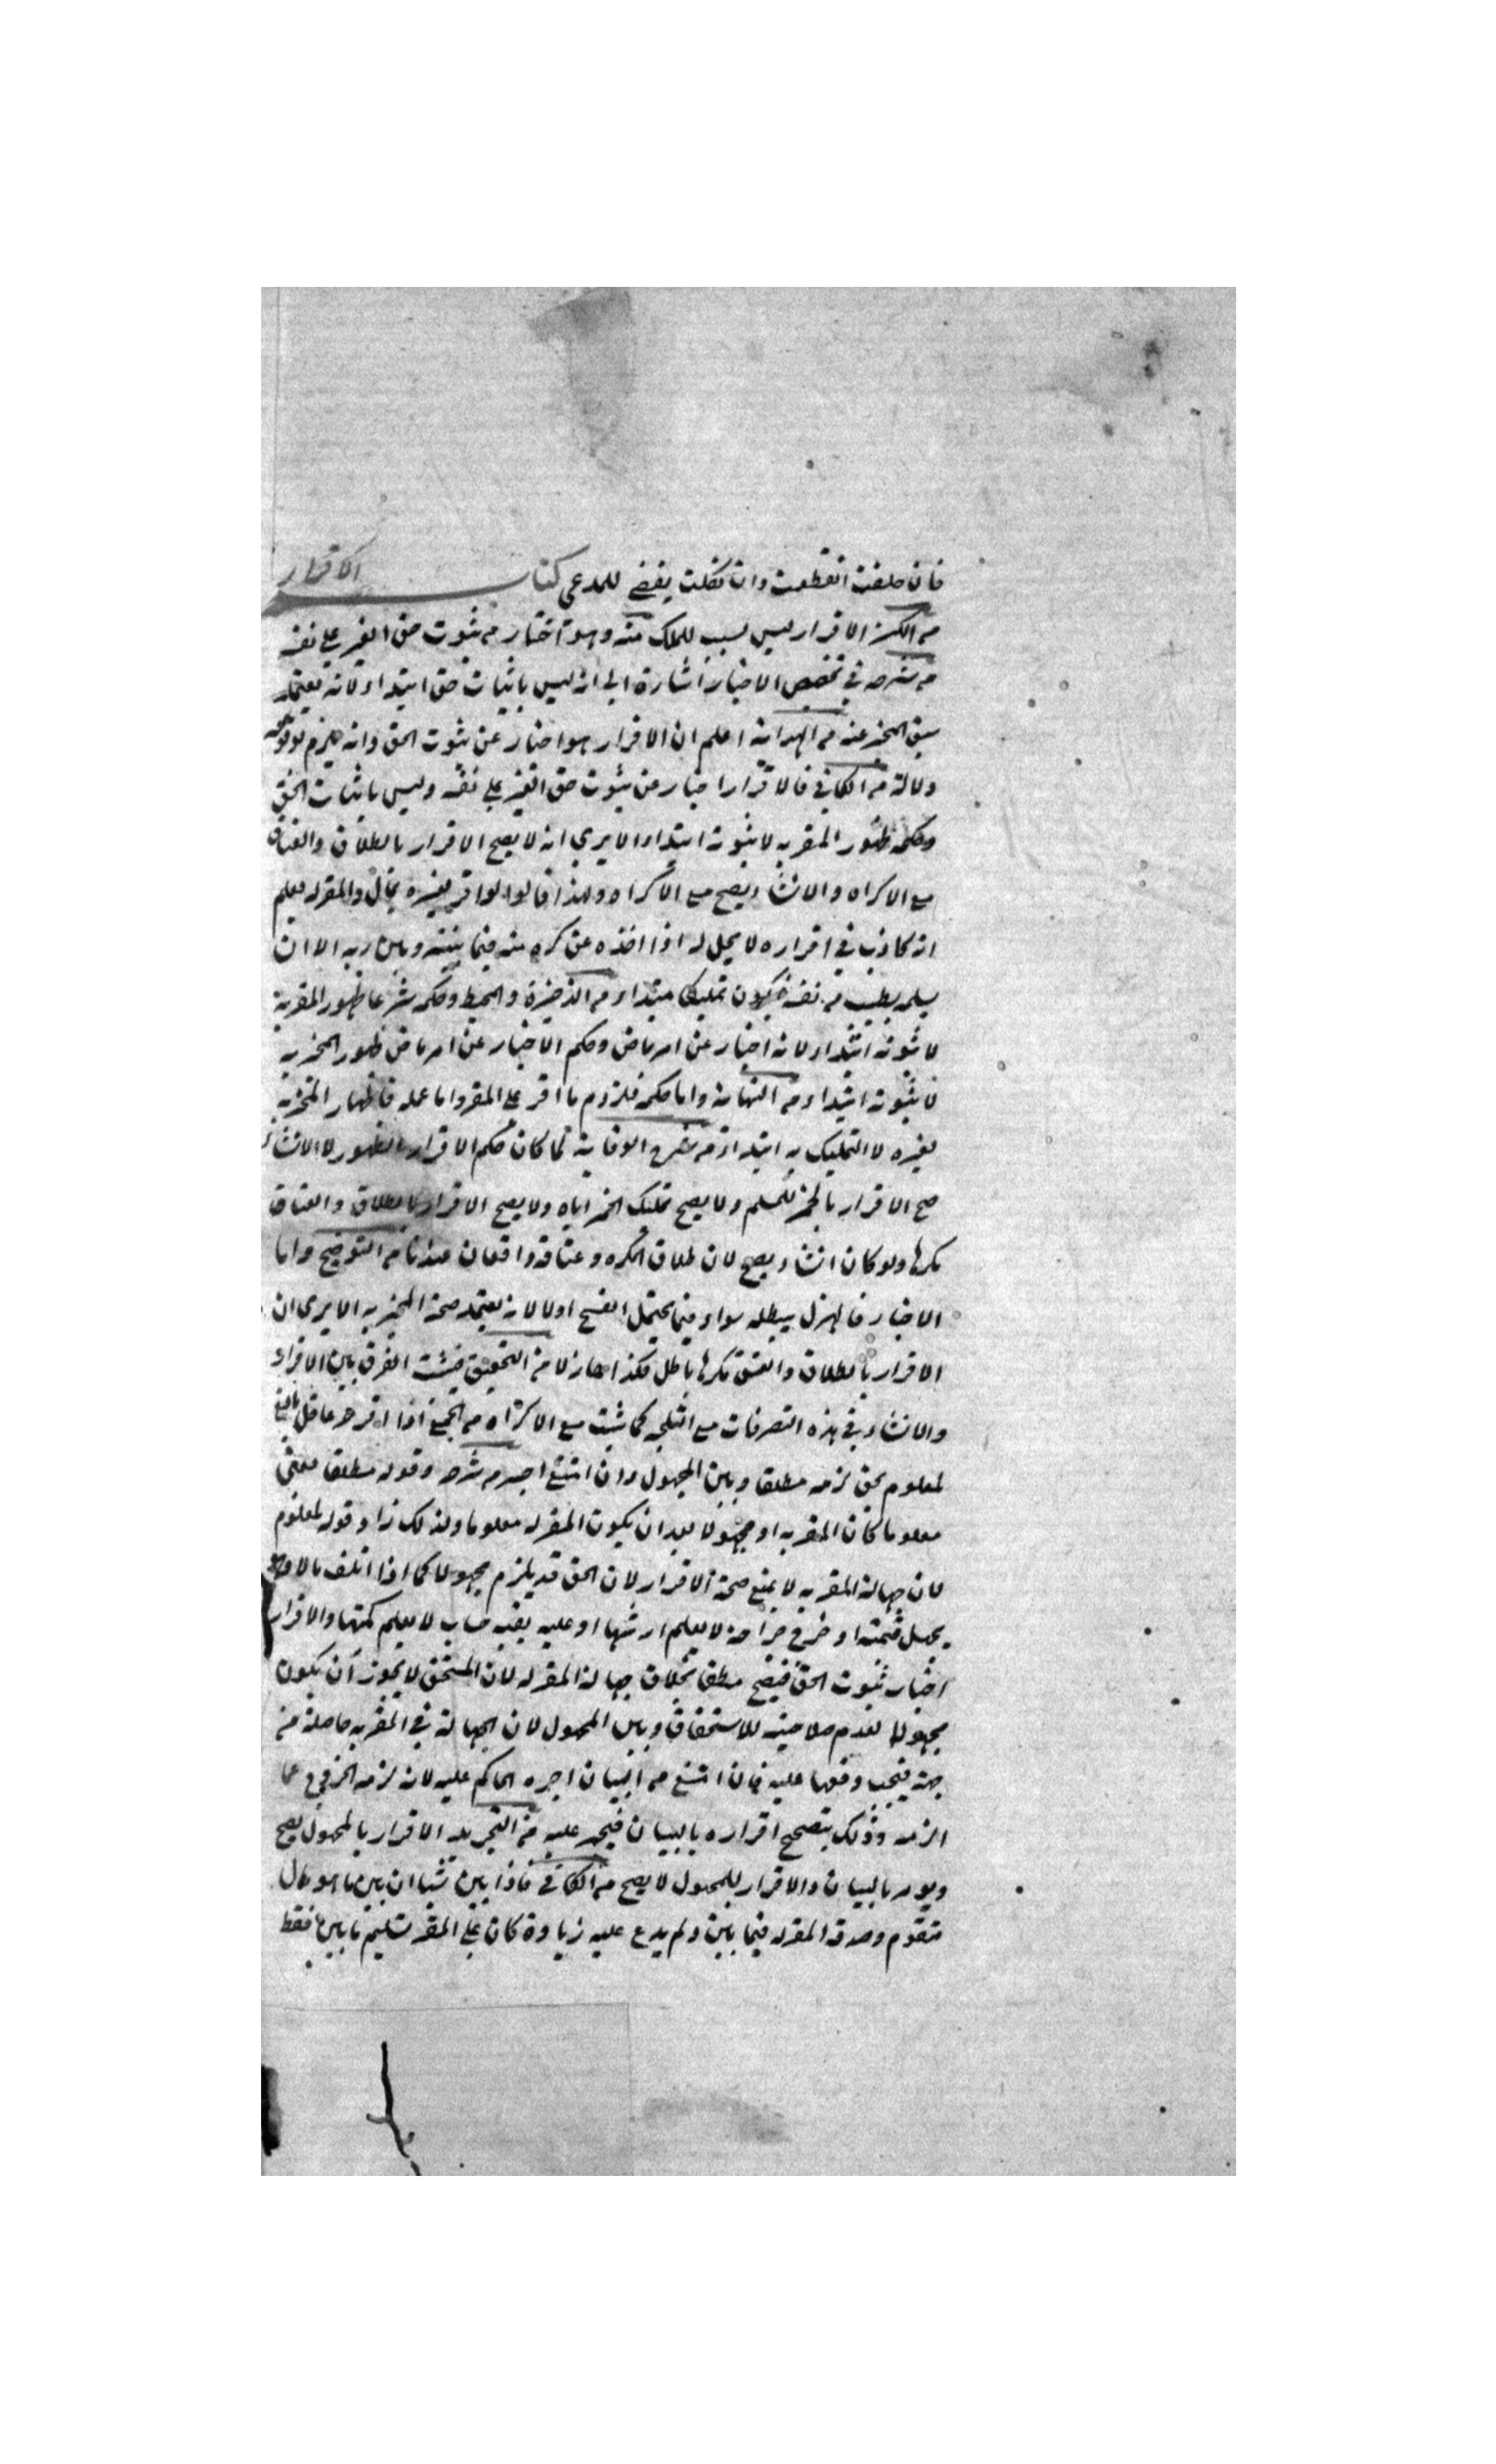 فان حلفت انقطعت وان نكلت يقضى للمدعي كتاب الاقرار
من الكنز الاقرار ليس بسبب للملك منه وهو اخبار من ثبوت حق الغير على نفسه
من شرحه في تخصيص الاخبار اشارة الى انه ليس باثبات حق ابتداء لانه يعتمد
سبق المخبر عنه من الهداية اعلم ان الاقرار هو اخبار عن ثبوت الحق وانه ملزم لوقوعه
دلالة من الكافي فالاقرار اخبار عن ثبوت حق الغير على نفسه وليس باثبات الحق
وحكمه ظهور المقر به لا ثبوته ابتداء الا يرى انه لا يصح الاقرار بالطلاق والعتاق
مع الاكراه والانشاء يصح مع الاكراه ولهذا قالوا لو اقر لغيره بمال والمقر له يعلم
انه كاذب في اقراره لا يحل له اذا اخذه عن كره منه فيما بينه وبين ربه الا ان
يسلمه بطيب من نفسه فيكون تمليكا مبتداء من الذخيرة والمحيط وحكمه شرعا ظهور المقر به
لا ثبوته ابتداء لانه اخبار عن امر ماض وحكم الاخبار عن امر ماض ظهور المخبر به
لا ثبوته ابتداء من النهاية واما حكمه فلزوم ما اقر على المقر واما عمله فاظهار المخبر به
لغيره لا التمليك به ابتداء من شرح الوقاية لما كان حكم الاقرار الظهور لا الانشاء
صح الاقرار بالخمر للمسلم ولا يصح تمليك الخمر اياه ولا يصح الاقرار بالطلاق والعتاق
مكرها ولو كان انشاء يصح لان طلاق المكره وعتاقه واقعان عندنا من التوضيح واما
الاخبار فالهزل يبطله سواء فيما يحتمل الفسخ اولا لانه يعتمد صحة المخبر به الا يرى ان
الاقرار بالطلاق والعتق مكرها باطل فكذا هازلا من التحقيق فثبت الفرق بين الاقرار
والانشاء في هذه التصرفات مع التلجئة كما ثبت مع الاكراه من المجمع اذا اقر حر عاقل بالغ
لمعلوم بحق لزمه مطلقا وبين المجهول وان امتنع اجبر من شرحه وقوله مطلقا معنى
معلوما كان المقر به او مجهولا بعد ان يكون المقر له معلوما ولذلك زاد قوله لمعلوم
لان جهالة المقر به لا يمنع صحة الاقرار لان الحق قد يلزم مجهولا كما اذا اتلف مالا وهو
يجهل قيمته او جراحة لا يعلم ارشها او عليه بقية حساب لا يعلم كميتها والاقرار
اخبار ثبوت الحق فيصح مطلقا بخلاف جهالة المقر له لان المستحق لا يجوز ان يكون
مجهولا لعدم صلاحيته للاستحقاق وبين المجهول لان الجهالة في المقر به حاصلة من
جهته فيجب دفعها عليه فان امتنع من البيان اجبره الحاكم عليه لانه لزمه الخروج عما
الزمه وذلك بتصحيح اقراره بالبيان فيجبر عليه من التجريد الاقرار بالمجهول يصح
ويومر بالبيان والاقرار للمجهول لا يصح من الكافي فاذا بين شيا ان بين ما هو مال
متقوم وصدقه المقر له فيما بين ولم يدع عليه زيادة كان على المقر تسليم ما بين فقط